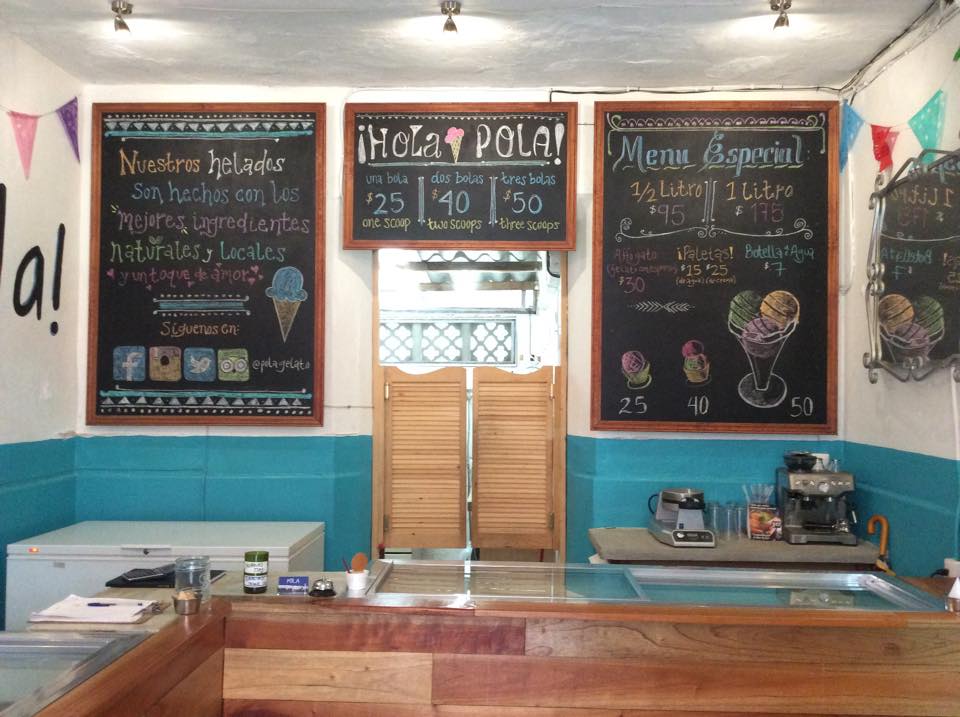 a!
Nuestros helados
Son hechos con los
Mejores ingredientes
naturales y Locales
y un toque de amor
Síguenos en:
@pola.gelato
¡HOLA POLA!
una bola
$25
one scoop
dos bolas
$40
two scoops
tres bolas
$50
three scoops
Menu Especial
1/2 Litro
$95
1 Litro
$175
Affogato
$30
¡Paletas!
$15 $25
Botella Agua
$7
25 40 50
POLA